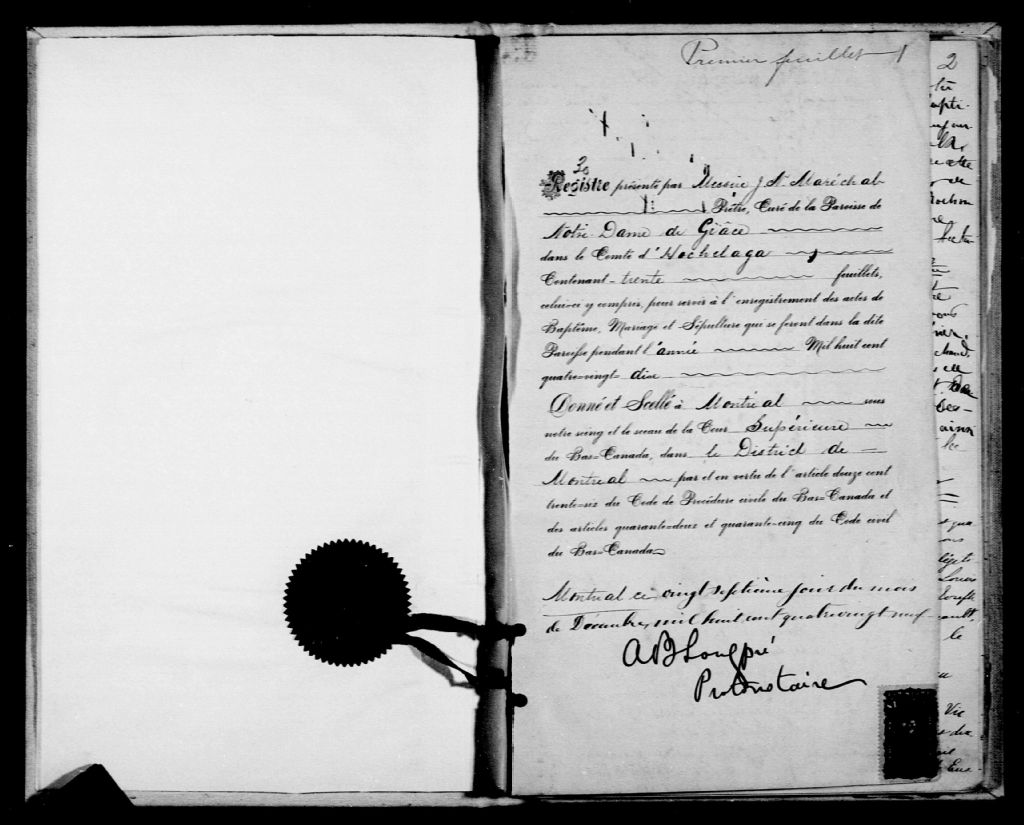 Premier feuillet 1
30
Registre présenté par Messire J. N. Maréchal
Prêtre, Curé de la Paroisse de
Notre Dame de Grâce
dans le Comté d'Hochelaga
Contenant trente feuillets,
celui-ci y compris, pour servir à l'enregistrement des actes de
Baptême, Mariage et Sépulture qui se feront dans la dite
Paroisse pendant l'année Mil huit cent
quatre-vingt dix
Donné et Scellé à Montréal sous
notre seing et le sceau de la Cour Supérieure
du Bas-Canada, dans le District de
Montreal par et en vertu de l'article douze cent
trente-six du Code de Procédure civile du Bas-Canada et
des articles quarante-deux et quarante-cinq du Code civil
du Bas-Canada
Montreal ce vingt septième jour du mois
de Décembre mil huit cent quatre vingt neuf
A B Longpré
Protonotaire
2